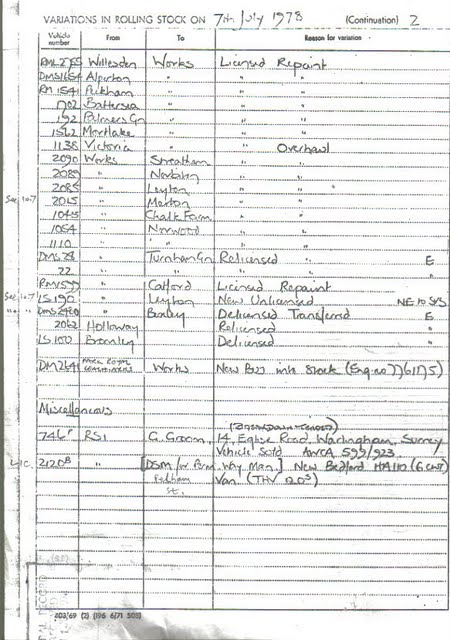 VARIATIONS IN ROLLING STOCK ON 7th July 1978 (Continuation) 2
Vehicle number From To Reason for variation
RML 2755 Willesden Works Licensed Repaint
DMS1654 Alperton " " "
RM 1541 Peckham " " "
1702 Battersea " " "
192 Palmers Gn " " "
1562 Mortlake " " "
1138 Victoria " " Overhaul
2090 Works Streatham " "
2089 " Norbiton " "
2085 " Leyton " "
Sec 10.7 2015 " Merton " "
1045 " Chalk Farm " "
1054 " Norwood " "
1110 " " " "
DMS 78 " Turnham Gn Relicensed " E
22 " " " "
RM1599 " Catford Licensed Repaint
Sec 10.7 LS 190 " Leyton New Unlicensed NE to SYS
" " DMS 2480 " Bexley Delicensed Transferred E
2062 Holloway Relicensed "
LS 100 Bromley Delicensed "
DM2541 Works New Bus into Stock (Eng. no 7761175)
Miscellaneous
(Breakdown Tender)
746 F RS1 G. Groom, 14, Eglise Road, Warlingham, Surrey
Vehicle Sold AWCA 599/923
2120B " [DSM for Perm. Way Man.] New Bedford HA110 (6 cwt)
Fulham St. Van (THV 120S)
403/69 (2) (196 6/71 50S)